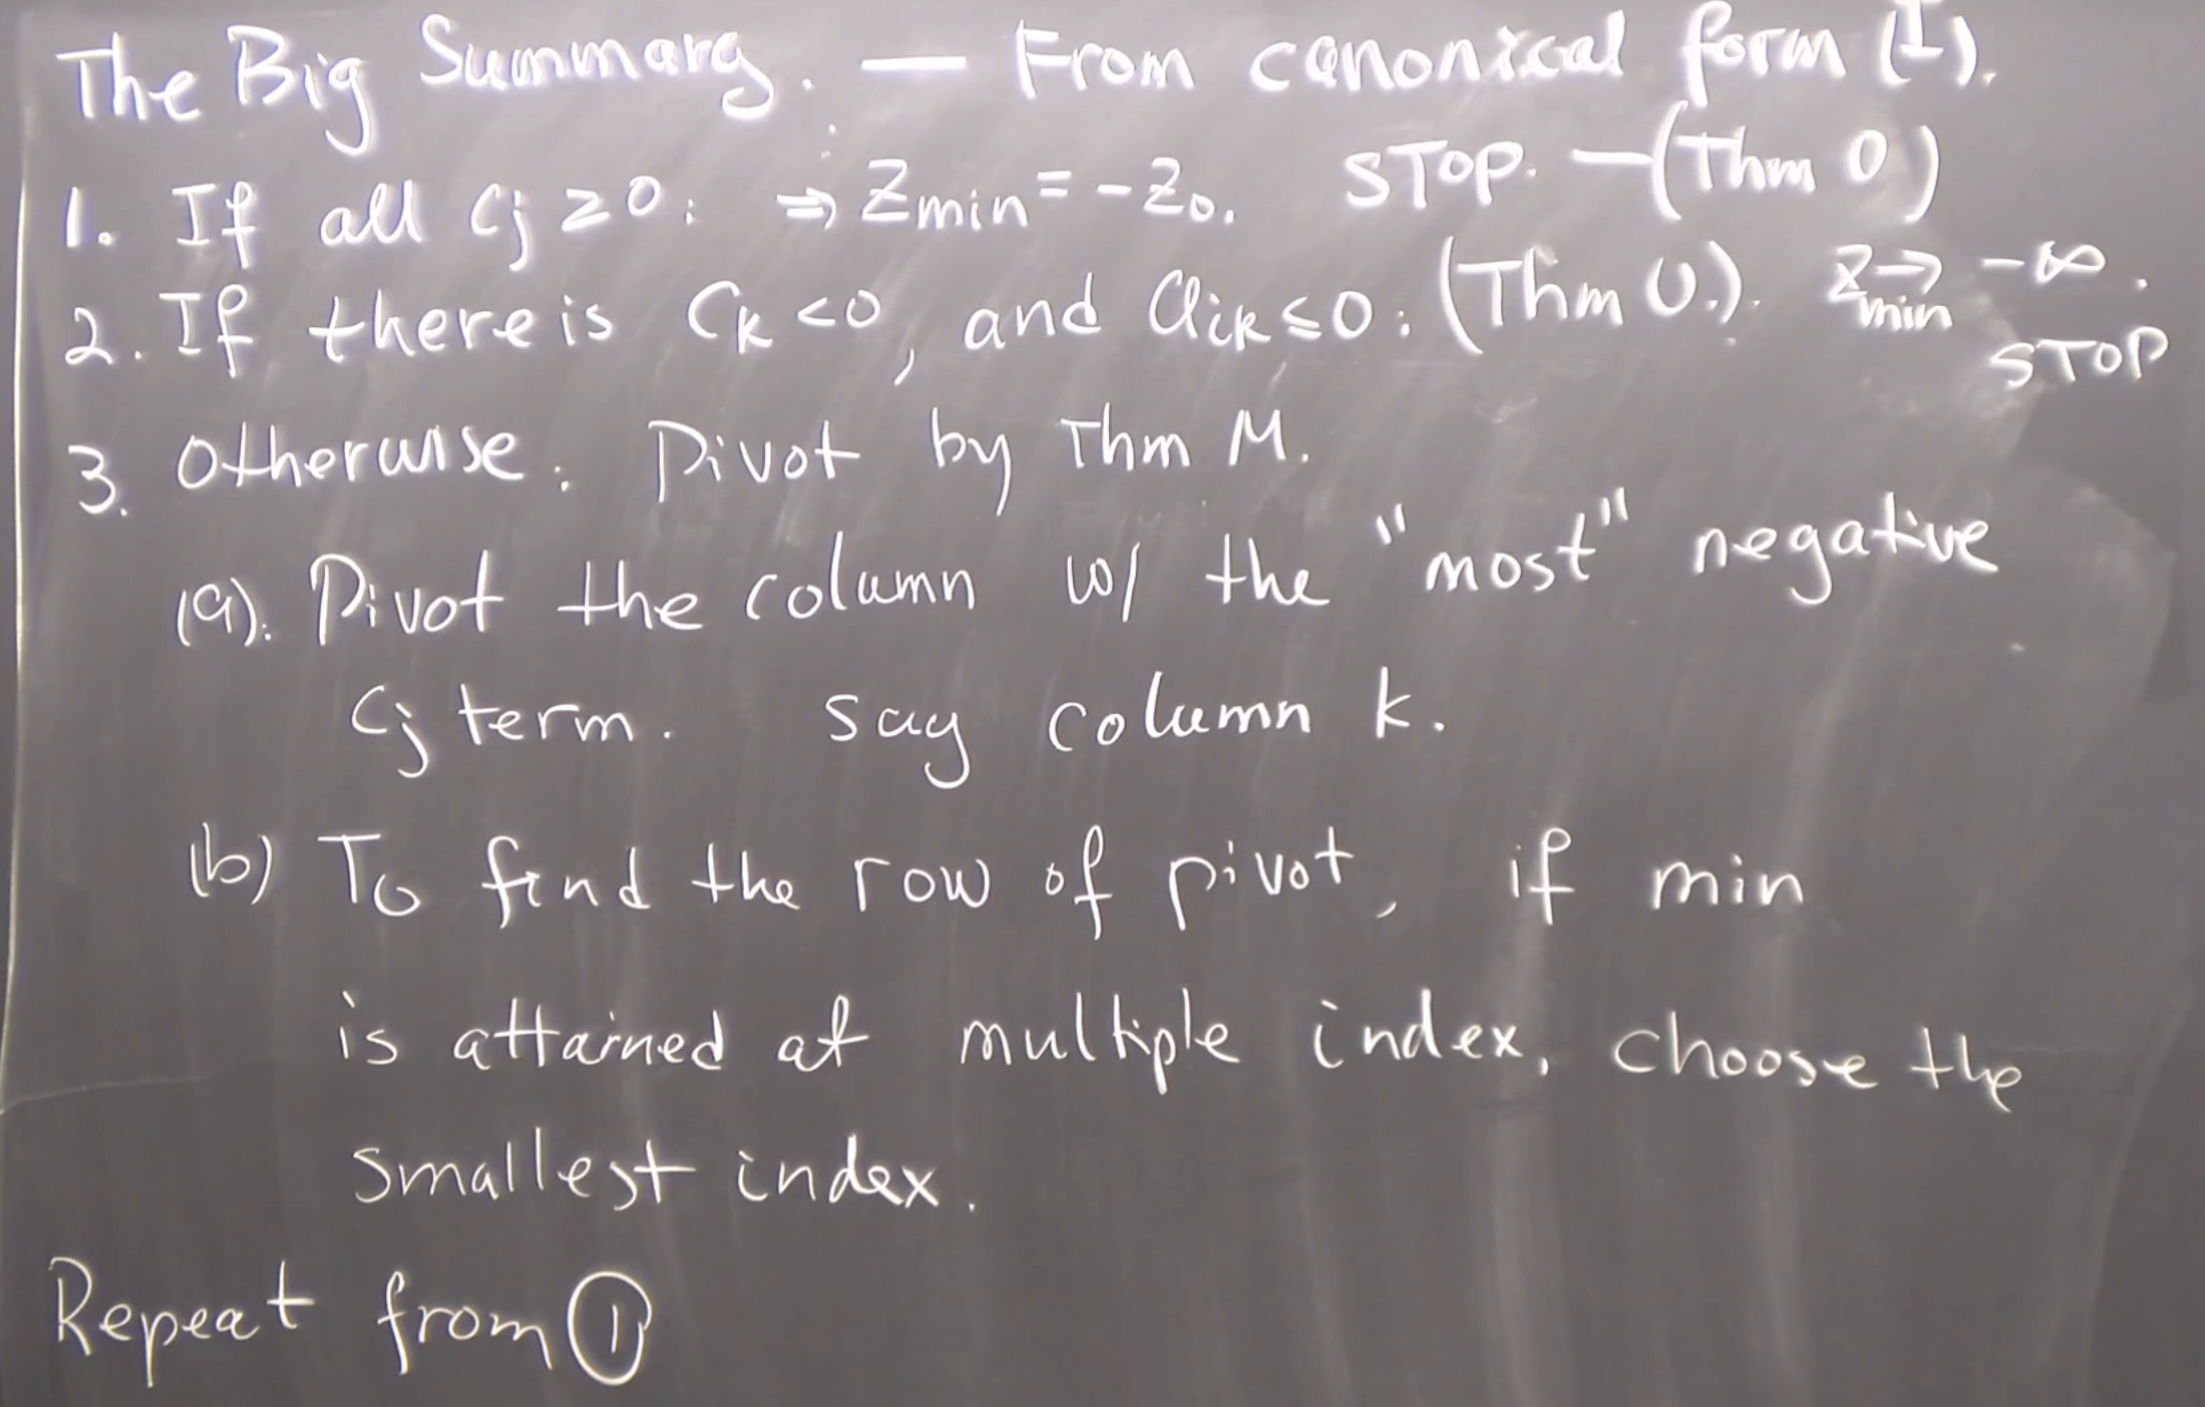 The Big Summary. — From canonical form (I).
1. If all Cj ≥ 0: ⇒ Zmin = -Z0. STOP. — (Thm O)
2. If there is Ck < 0, and aik ≤ 0: (Thm U.). Zmin → -∞.
STOP
3. Otherwise: Pivot by Thm M.
(a). Pivot the column w/ the "most" negative
Cj term. say column k.
(b) To find the row of pivot, if min
is attained at multiple index, choose the
smallest index.
Repeat from ①